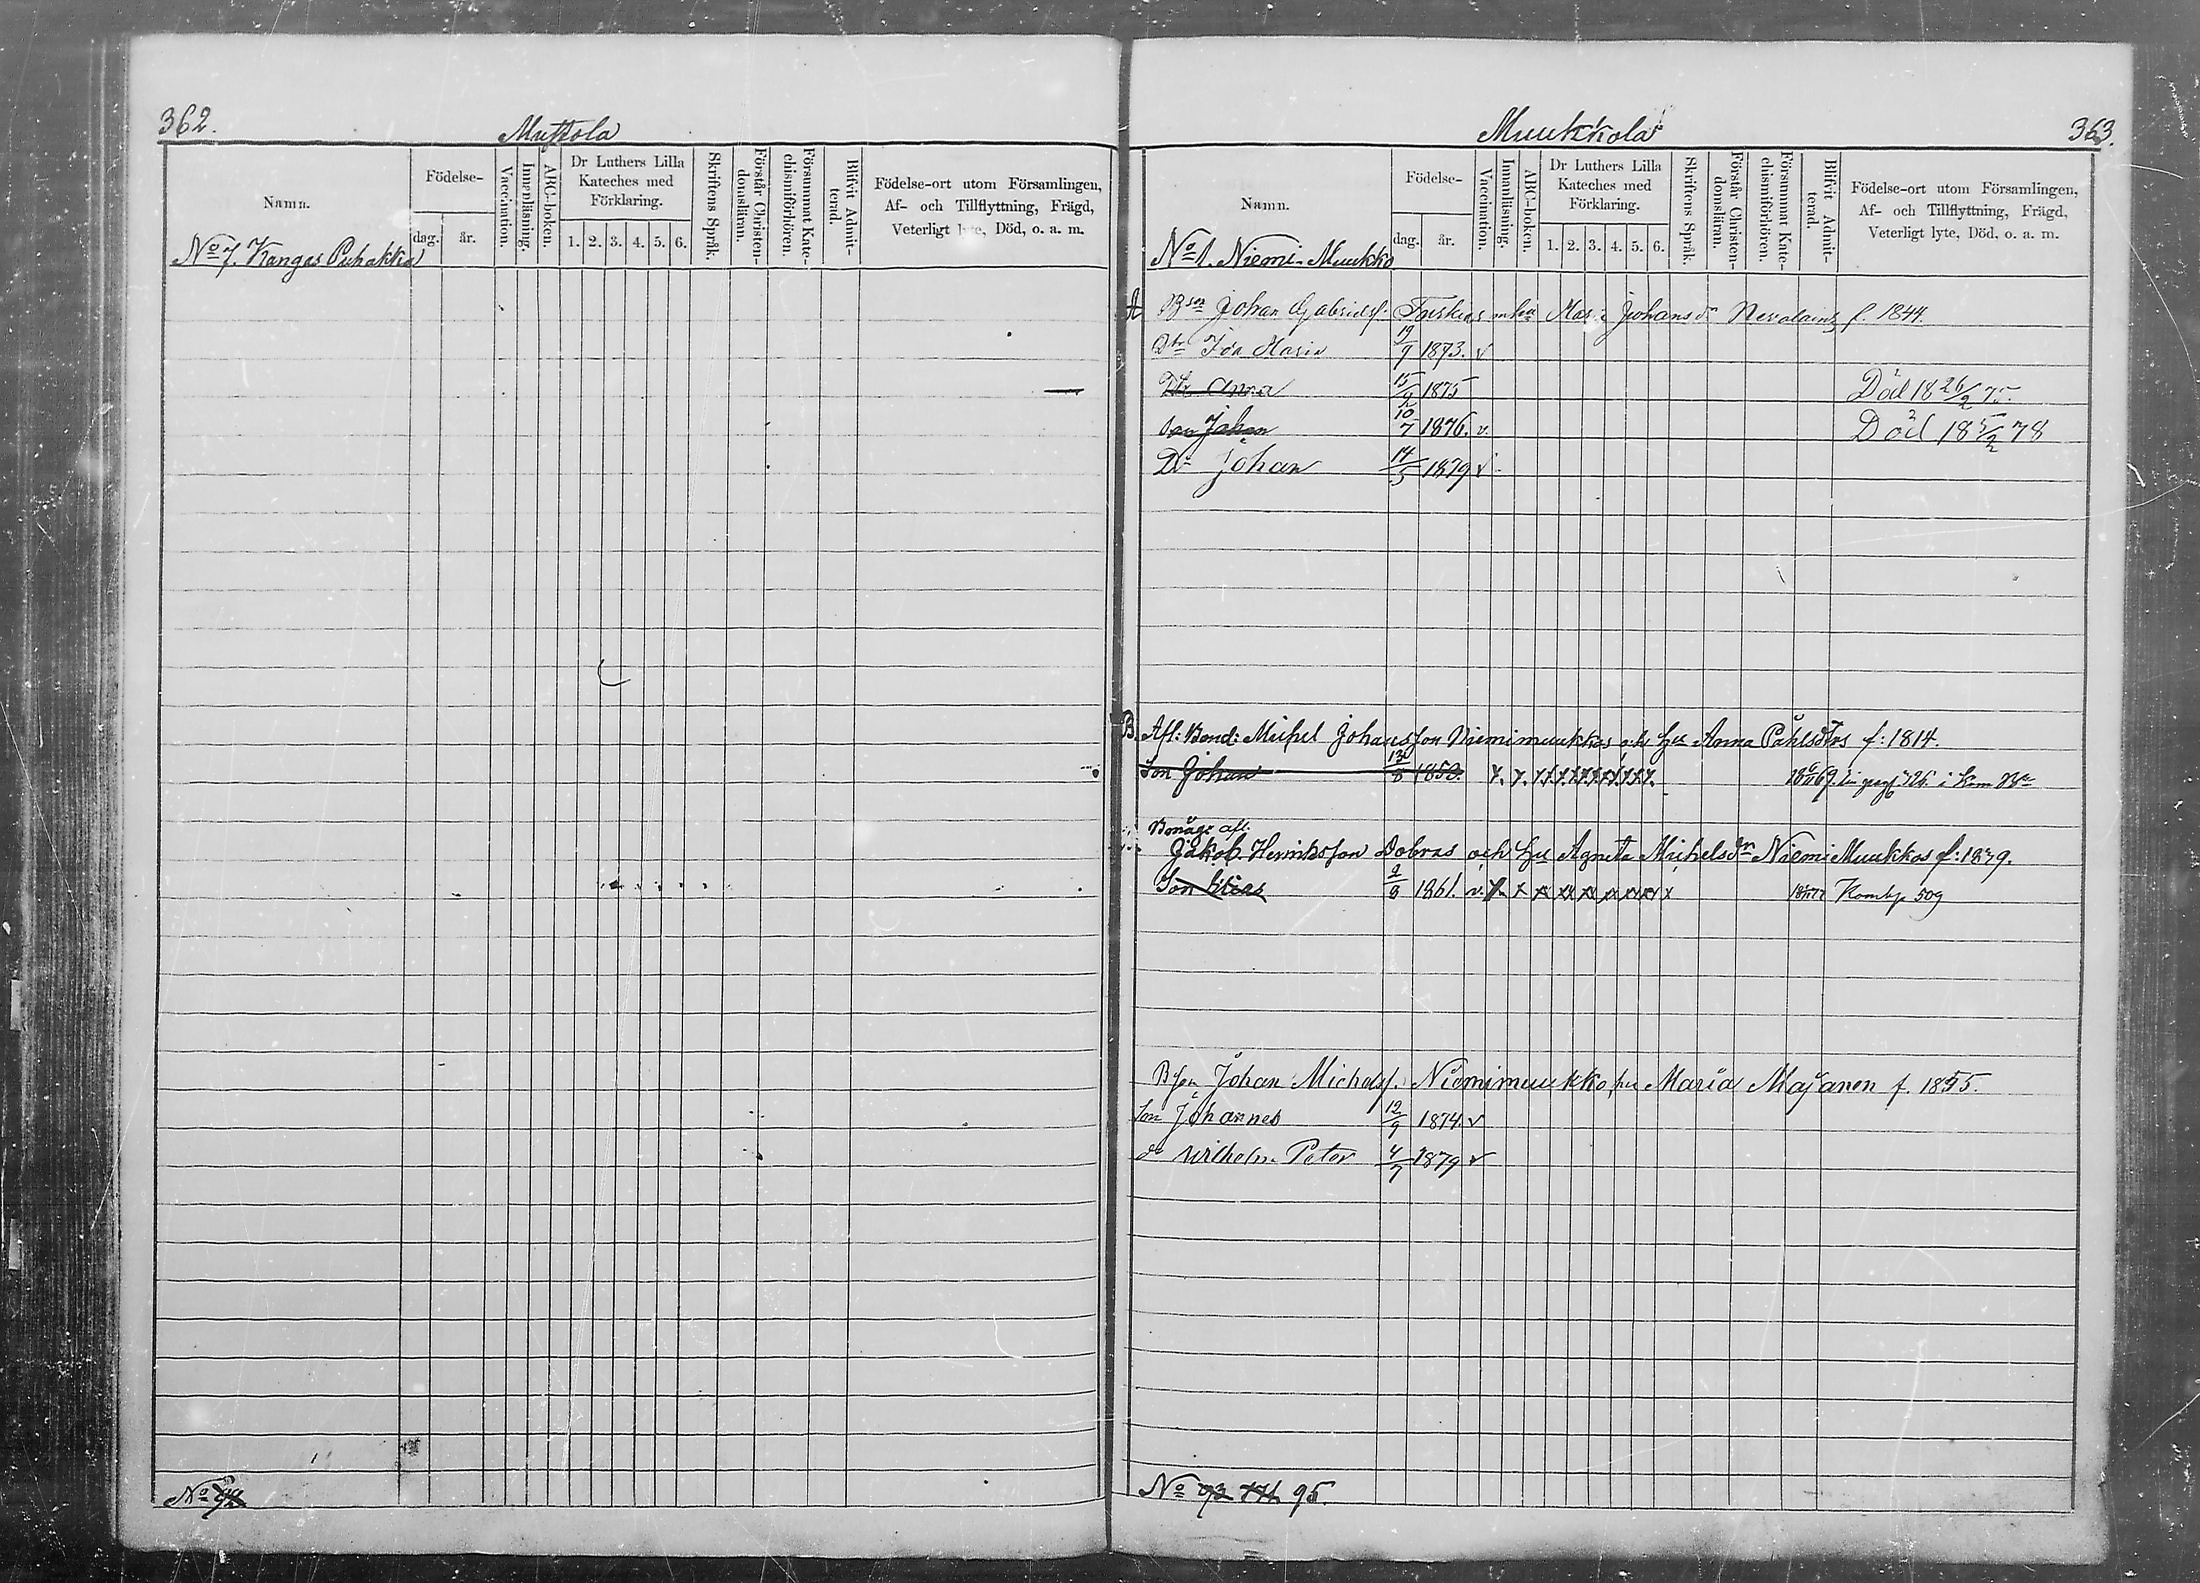 362.
Muttola
Namn.
Födelse-
dag.
år.
Vaccination.
Innanläsning.
ABC-boken.
Dr Luthers Lilla
Kateches med
Förklaring.
1. 2. 3. 4. 5. 6.
Skriftens Språk.
Förstår Christen-
domsläran.
Försummat Kate-
chismiförhören.
Blifvit Admit-
terad.
Födelse-ort utom Församlingen,
Af- och Tillflyttning, Frägd,
Veterligt lyte, Död, o. a. m.
No 7. Kangas Puhakka
No
Muukkola
363.
Namn.
Födelse-
dag.
år.
Vaccination.
Innanläsning.
ABC-boken.
Dr Luthers Lilla
Kateches med
Förklaring.
1. 2. 3. 4. 5. 6.
Skriftens Språk.
Förstår Christen-
domsläran.
Försummat Kate-
chismiförhören.
Blifvit Admit-
terad.
Födelse-ort utom Församlingen,
Af- och Tillflyttning, Frägd,
Veterligt lyte, Död, o. a. m.
No 1. Niemi-Muukko
A Bson Johan Gabrielsf. Johansdr f. 1844.
Dtr Ida Maria 19/9 1873. v
Dtr Anna 15/2 1875 Död 18 26/2 75.
Son Johan 10/7 1876. v. Död 18 5/2 78
Do Johan 14/5 1879 v
B. Afl: Bond: Michel Johansson Niemimuukkos och hu Anna Påhlsdtrs f: 1814.
Son Johan 13/8 1850.
Bonäge afl:
Jakob Henriksson Dobras och hu Agneta Michelsdtr NiemiMuukkos f: 1839.
Son Elias 2/8 1861. v. 509
Bson Johan Michelsf. Niemimuukko, hu Maria Majanen f. 1855.
Son Johannes 12/9 1874. v
do Wilhelm Peter 4/7 1879 v
No 93 171 95.